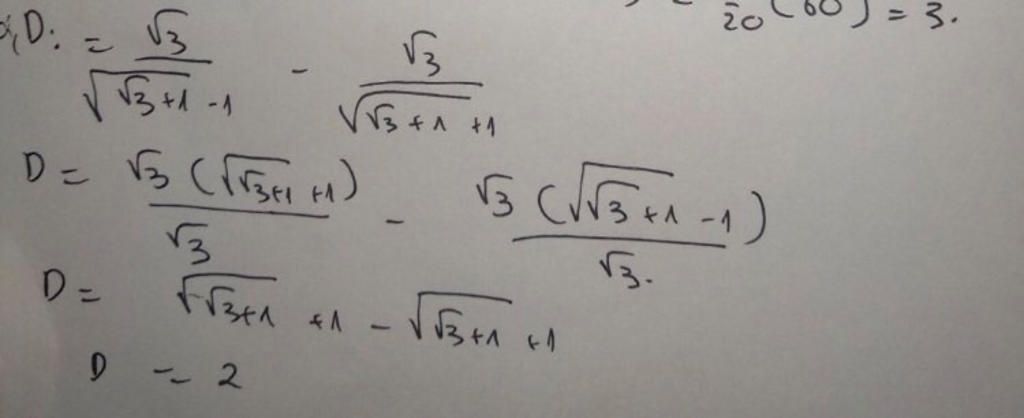 20 (60) = 3.
D: = √3/(√(√3+1) -1) - √3/(√(√3+1) +1)
D = √3 (√(√3+1) +1)/√3 - √3 (√(√3+1) -1)/√3.
D = √(√3+1) +1 - √(√3+1) +1
D = 2